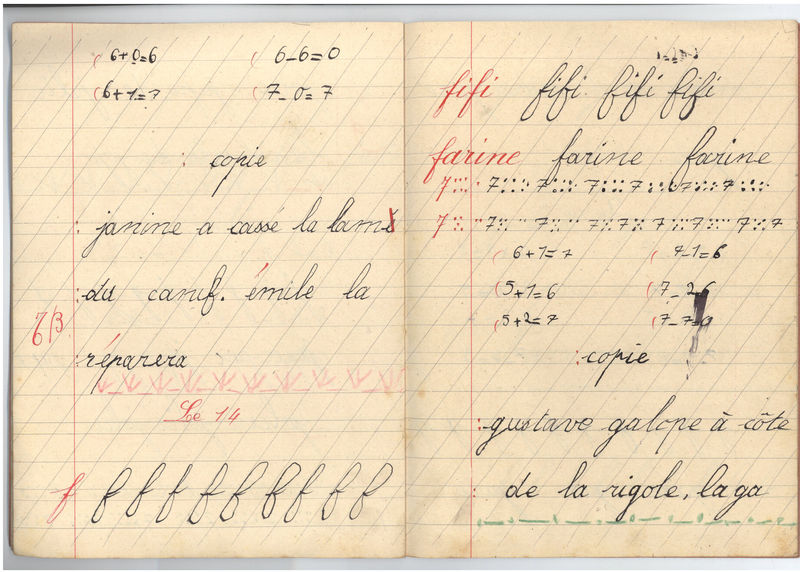 6+0=6 6-6=0
6+1=7 7-0=7
: copie
: janine a cassé la lame
: du canif. émile la
TB
: réparera
Le 14
f f f f f f f f f f
fifi fifi fifi fifi
farine farine farine
7 :: 7 7 7 7 7 7
7 7 7 7 7 7 7 7
6+1=7 7-1=6
5+1=6 7-
5+2=7 7-7=0
: copie
: gustave galope à côte
: de la rigole, la ga